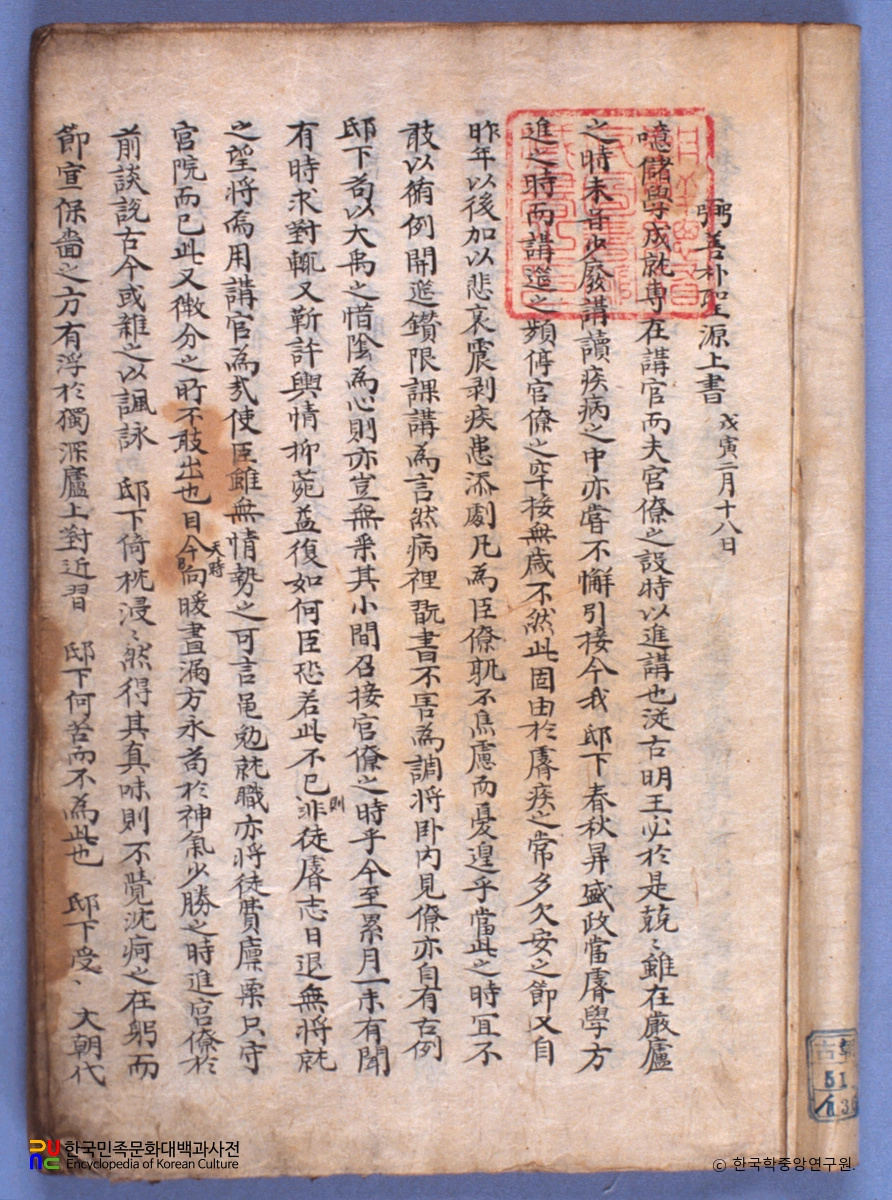 弼善朴聖源上書 戊寅二月十八日
噫儲學成就專在講官而夫官僚之設特以進講也從古明王必於是兢〻雖在嚴廬
之時未嘗少廢講讀疾病之中亦嘗不懈引接今我 邸下春秋昇盛政當睿學方
進之時而講筵之頻停官僚之罕接無歲不然此固由於睿疾之常多欠安之節又自
昨年以後加以悲哀震剥疾患添劇凡爲臣僚孰不焦慮而憂遑乎當此之時宜不
敢以循例開筵鑽限課講爲言然病裡翫書不害爲調將卧内見僚亦自有古例
邸下苟以大禹之惜陰爲心則亦豈無乘其小間召接官僚之時乎今至累月一未有聞
有時求對輒又靳許輿情抑菀益復如何臣恐若此不已則非徒睿志日退無將就
之望將焉用講官爲哉使臣雖無情勢之可言黽勉就職亦將徒費廩粟只守
官院而已此又微分之所不敢出也目今天時向暖晝漏方永苟於神氣少勝之時進官僚於
前談說古今或雜之以諷詠 邸下倚枕浸〻然得其真味則不覺沈痾之在躬而
節宣保嗇之方有浮於獨深廬上對近習 邸下何苦而不爲此也 邸下受〻 大朝代
古朝
51.
136
한국민족문화대백과사전
Encyclopedia of Korean Culture
ⓒ 한국학중앙연구원.